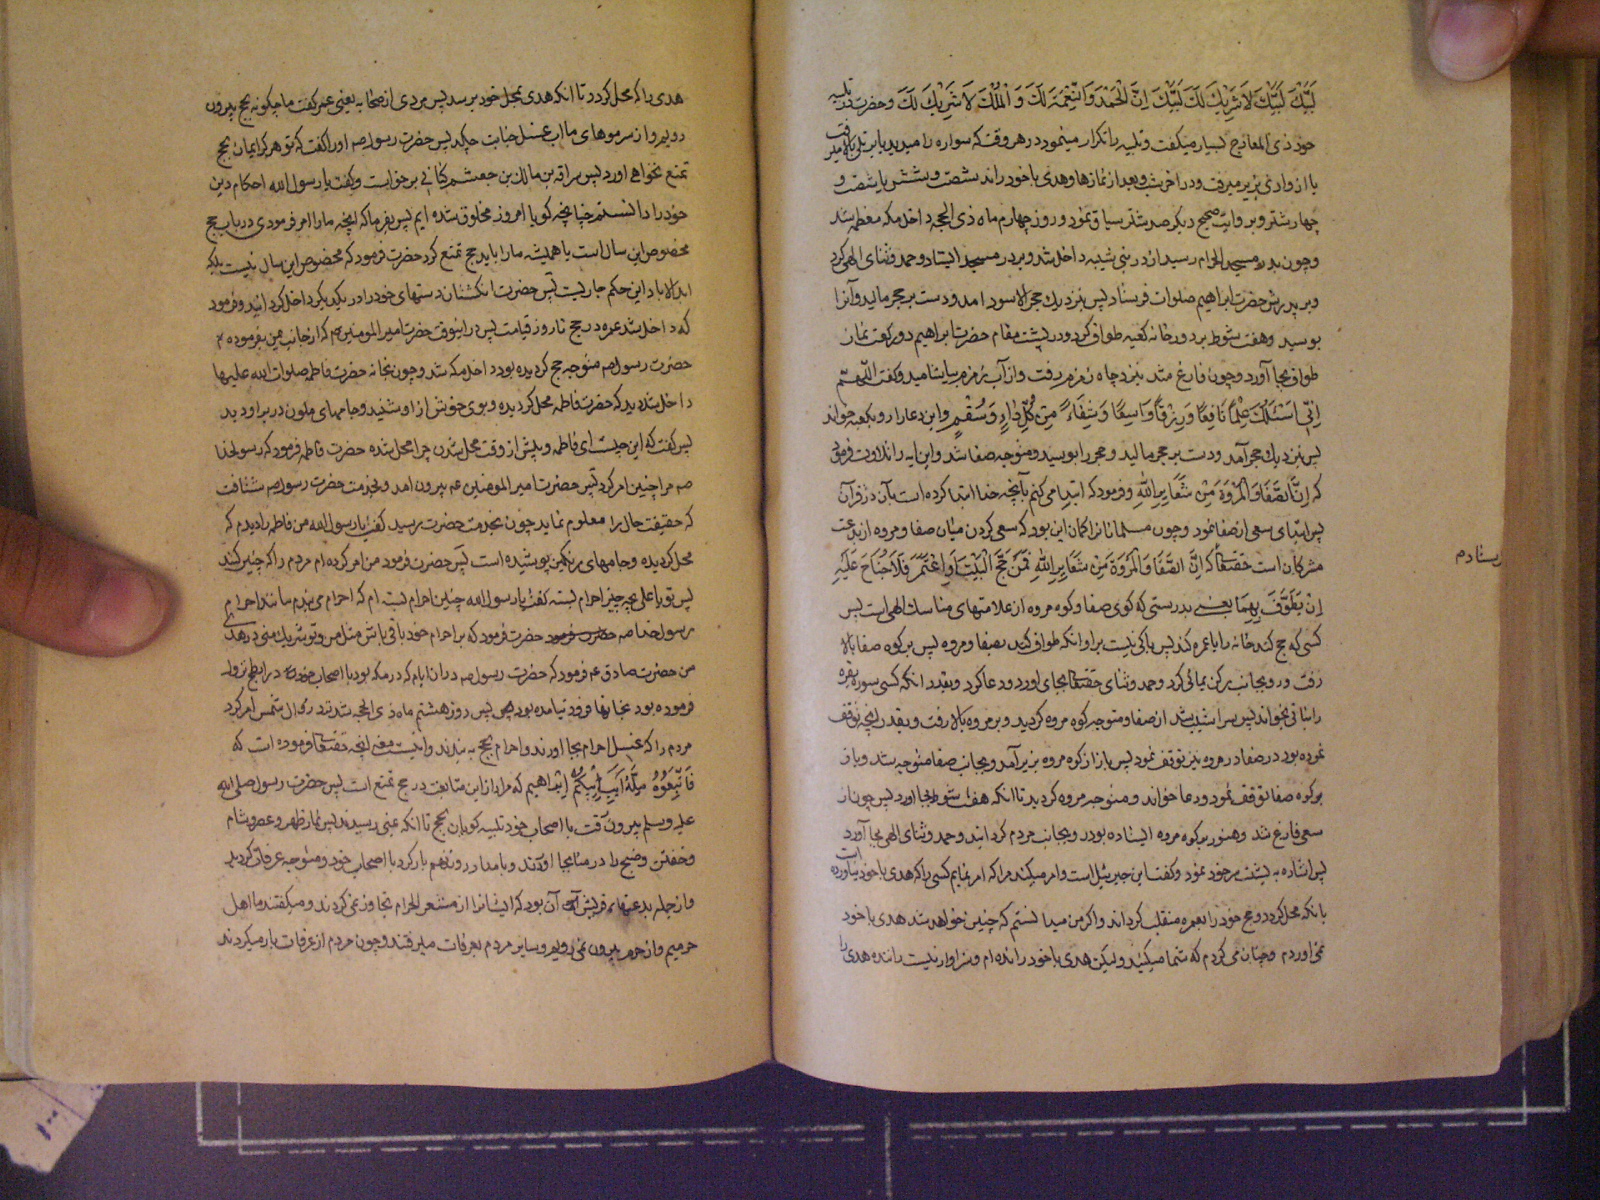 لَبَّيْكَ لَبَّيْكَ لَا شَرِيْكَ لَكَ لَبَّيْكَ اِنَّ الْحَمْدَ وَالنِّعْمَةَ لَكَ وَ الْمُلْكَ لَا شَرِيْكَ لَكَ وحضرت در تلبيه
خود ذی المعارج بسیار میکفت وتلبیه را تکرار مینمود در هر وقت که سواره را میدید یا بر تلی بالا میرفت
یا از وادی بزیر میرفت ودر اخر شب وبعد از نمازها وهدی با خود راند شصت وشش یا شصت و
چهار شتر وبروایت صحیح دیکر صد شتر سیاق نمود وروز چهارم ماه ذی الحجه داخل مکه معظمه شد
وچون بدر مسجد الحرام رسید از در بنی شیبه داخل شد وبر در مسجد ایستاد وحمد وثنای الهی کرد
وبر پدرش حضرت ابراهیم صلوات فرستاد پس بنزدیك حجر الاسود امد ودست بر حجر مالید وآنرا
بوسید وهفت شوط بر دور خانه کعبه طواف کرد ودر پشت مقام حضرت ابراهیم دو رکعت نماز
طواف بجا آورد وچون فارغ شد بنزد چاه زمزم رفت واز آب زمزم بیاشامید وکفت اللّهمّ
اِنّی اَسْئَلُكَ عِلْمًا نَافِعًا وَرِزْقًا وَاسِعًا وَشِفَاءً مِنْ كُلِّ دَاءٍ وَسُقْمٍ واین دعا را رو بکعبه خواند
پس بنزدیك حجر آمد ودست بر حجر مالید وحجر را بوسید ومتوجه صفا شد واین ایه را تلاوت فرمود
که اِنَّ الصَّفَا وَالْمَرْوَةَ مِنْ شَعَايِرِ اللهِ وفرمود که ابتدا می کنم بآنچه خدا ابتدا کرده است بآن در قرآن
پس ابتدای سعی از صفا نمود وچون مسلمانانرا کمان این بود که سعی کردن میان صفا ومروه از بدعت
مشرکان است حقتعالی فرستاد که اِنَّ الصَّفَا وَالْمَرْوَةَ مِنْ شَعَايِرِ اللهِ فَمَنْ حَجَّ الْبَيْتَ اَوِ اعْتَمَرَ فَلَا جُنَاحَ عَلَيْهِ
اِنْ يَطَّوَّفَ بِهِمَا یعنی بدرستی که کوی صفا وکوه مروه از علامتهای مناسك الهی است پس
کسی که حج کند خانه را یا عمره کند پس باکی نیست بر او انکه طواف کند بصفا ومروه پس بر کوه صفا بالا
رفت ورو بجانب رکن یمانی کرد وحمد وثنای حقتعالی بجای اورد ودعا کرد وبقدر انکه کسی سوره بقره
را بتانی بخواند پس سراشیب شد از صفا ومتوجه کوه مروه کردید وبر مروه بالا رفت وبقدر انچه توقف
نموده بود در صفا در مروه نیز توقف نمود پس باز از کوه مروه بزیر آمد وبجانب صفا متوجه شد وباز
بر کوه صفا توقف نمود ودعا خواند ومتوجه مروه کردید تا انکه هفت شوط بجا اورد پس چون از
سعی فارغ شد وهنوز بر کوه مروه ایستاده بود رو بجانب مردم کردانید وحمد وثنای الهی بجا آورد
پس اشاره به پشت سر خود نمود وکفت این جبرئیل است وامر میکند مرا که امر نمایم کسی را که هدی با خود نیاورده است
بانکه محل کردد وحج خود را بعمره منقلب کرداند واکر من میدانستم که چنین خواهد شد هدی با خود
نمی اوردم وچنان می کردم که شما میکنید ولیکن هدی با خود رانده ام وسزاوار نیست راننده هدی را
هدی را که محل کردد تا انکه هدی بمحل خود برسد پس مردی از صحابه یعنی عمر کفت ما چکونه بحج بیرون
رویم واز سر موهای ما اب غسل جنابت چکد پس حضرت رسول صه اورا کفت که تو هرکز ایمان بحج
تمتع نخواهی اورد پس سراقه بن مالك بن جعشم کنانی برخواست وکفت یا رسول الله احکام دین
خود را دانستیم چنانچه کویا امروز مخلوق شده ایم پس بفرما که آنچه ما را امر فرمودی در باب حج
مخصوص این سال است یا همیشه ما را باید حج تمتع کرد حضرت فرمود که مخصوص این سال نیست بلکه
ابد الاباد این حکم جاریست پس حضرت انکشتان دستهای خود را در یکدیکر داخل کردانید وفرمود
که داخل شد عمره در حج تا روز قیامت پس در اینوقت حضرت امیر المومنین عم که از جانب یمن بفرموده
حضرت رسول صه متوجه حج کردیده بود داخل مکه شد وچون بخانه حضرت فاطمه صلوات الله علیها
داخل شد دید که حضرت فاطمه محل کردیده وبوی خوش از او شنید وجامهای ملون در بر او دید
پس کفت که این چیست ای فاطمه وپیش از وقت محل شدن چرا محل شده حضرت فاطمه فرمود که رسول خدا
صه مرا چنین امر کرد پس حضرت امیر المومنین عه بیرون امد وبخدمت حضرت رسول صه شتافت
که حقیقت حال را معلوم نماید چون بخدمت حضرت رسید کفت یا رسول الله من فاطمه را دیدم که
محل کردیده وجامهای رنکین پوشیده است پس حضرت فرمود من امر کرده ام مردم را که چنین کنند
پس تو یا علی بچه چیز احرام بسته کفت یا رسول الله چنین احرام بسته ام که احرام می بندم مانند احرام
رسول خدا صه حضرت فرمود حضرت فرمود که بر احرام خود باقی باش مثل من وتو شریك منی در هدی
من حضرت صادق عه فرمود که حضرت رسول صه در ان ایام که در مکه بود با اصحاب خود در ابطح نزول
فرموده بود بخانها فرود نیامده بود پس روز هشتم ماه ذی الحجه شد نزد زوال شمس امر کرد
مردم را که غسل احرام بجا اورند واحرام بحج به بندند واینست معنی انچه حقتعالی فرموده است که
فَاتَّبِعُوْهُ مِلَّةَ اَبِيْكُمْ اِبْرَاهِيم که مراد از این متابعت در حج تمتع است پس حضرت رسول صلی الله
علیه وسلم بیرون رفت با اصحاب خود تلبیه کویان بحج تا انکه بمنی رسیدند پس نماز ظهر وعصر وشام
وخفتن وصبح را در منا بجا اوردند وبامداد روز نهم بار کرد با اصحاب خود ومتوجه عرفات کردید
واز جمله بدعتهای قریش آن بود که ایشان از مشعر الحرام تجاوز نمی کردند ومیکفتند ما اهل
حرمیم واز حرم بیرون نمی رویم وسایر مردم بعرفات میرفتند وچون مردم از عرفات بار میکردند